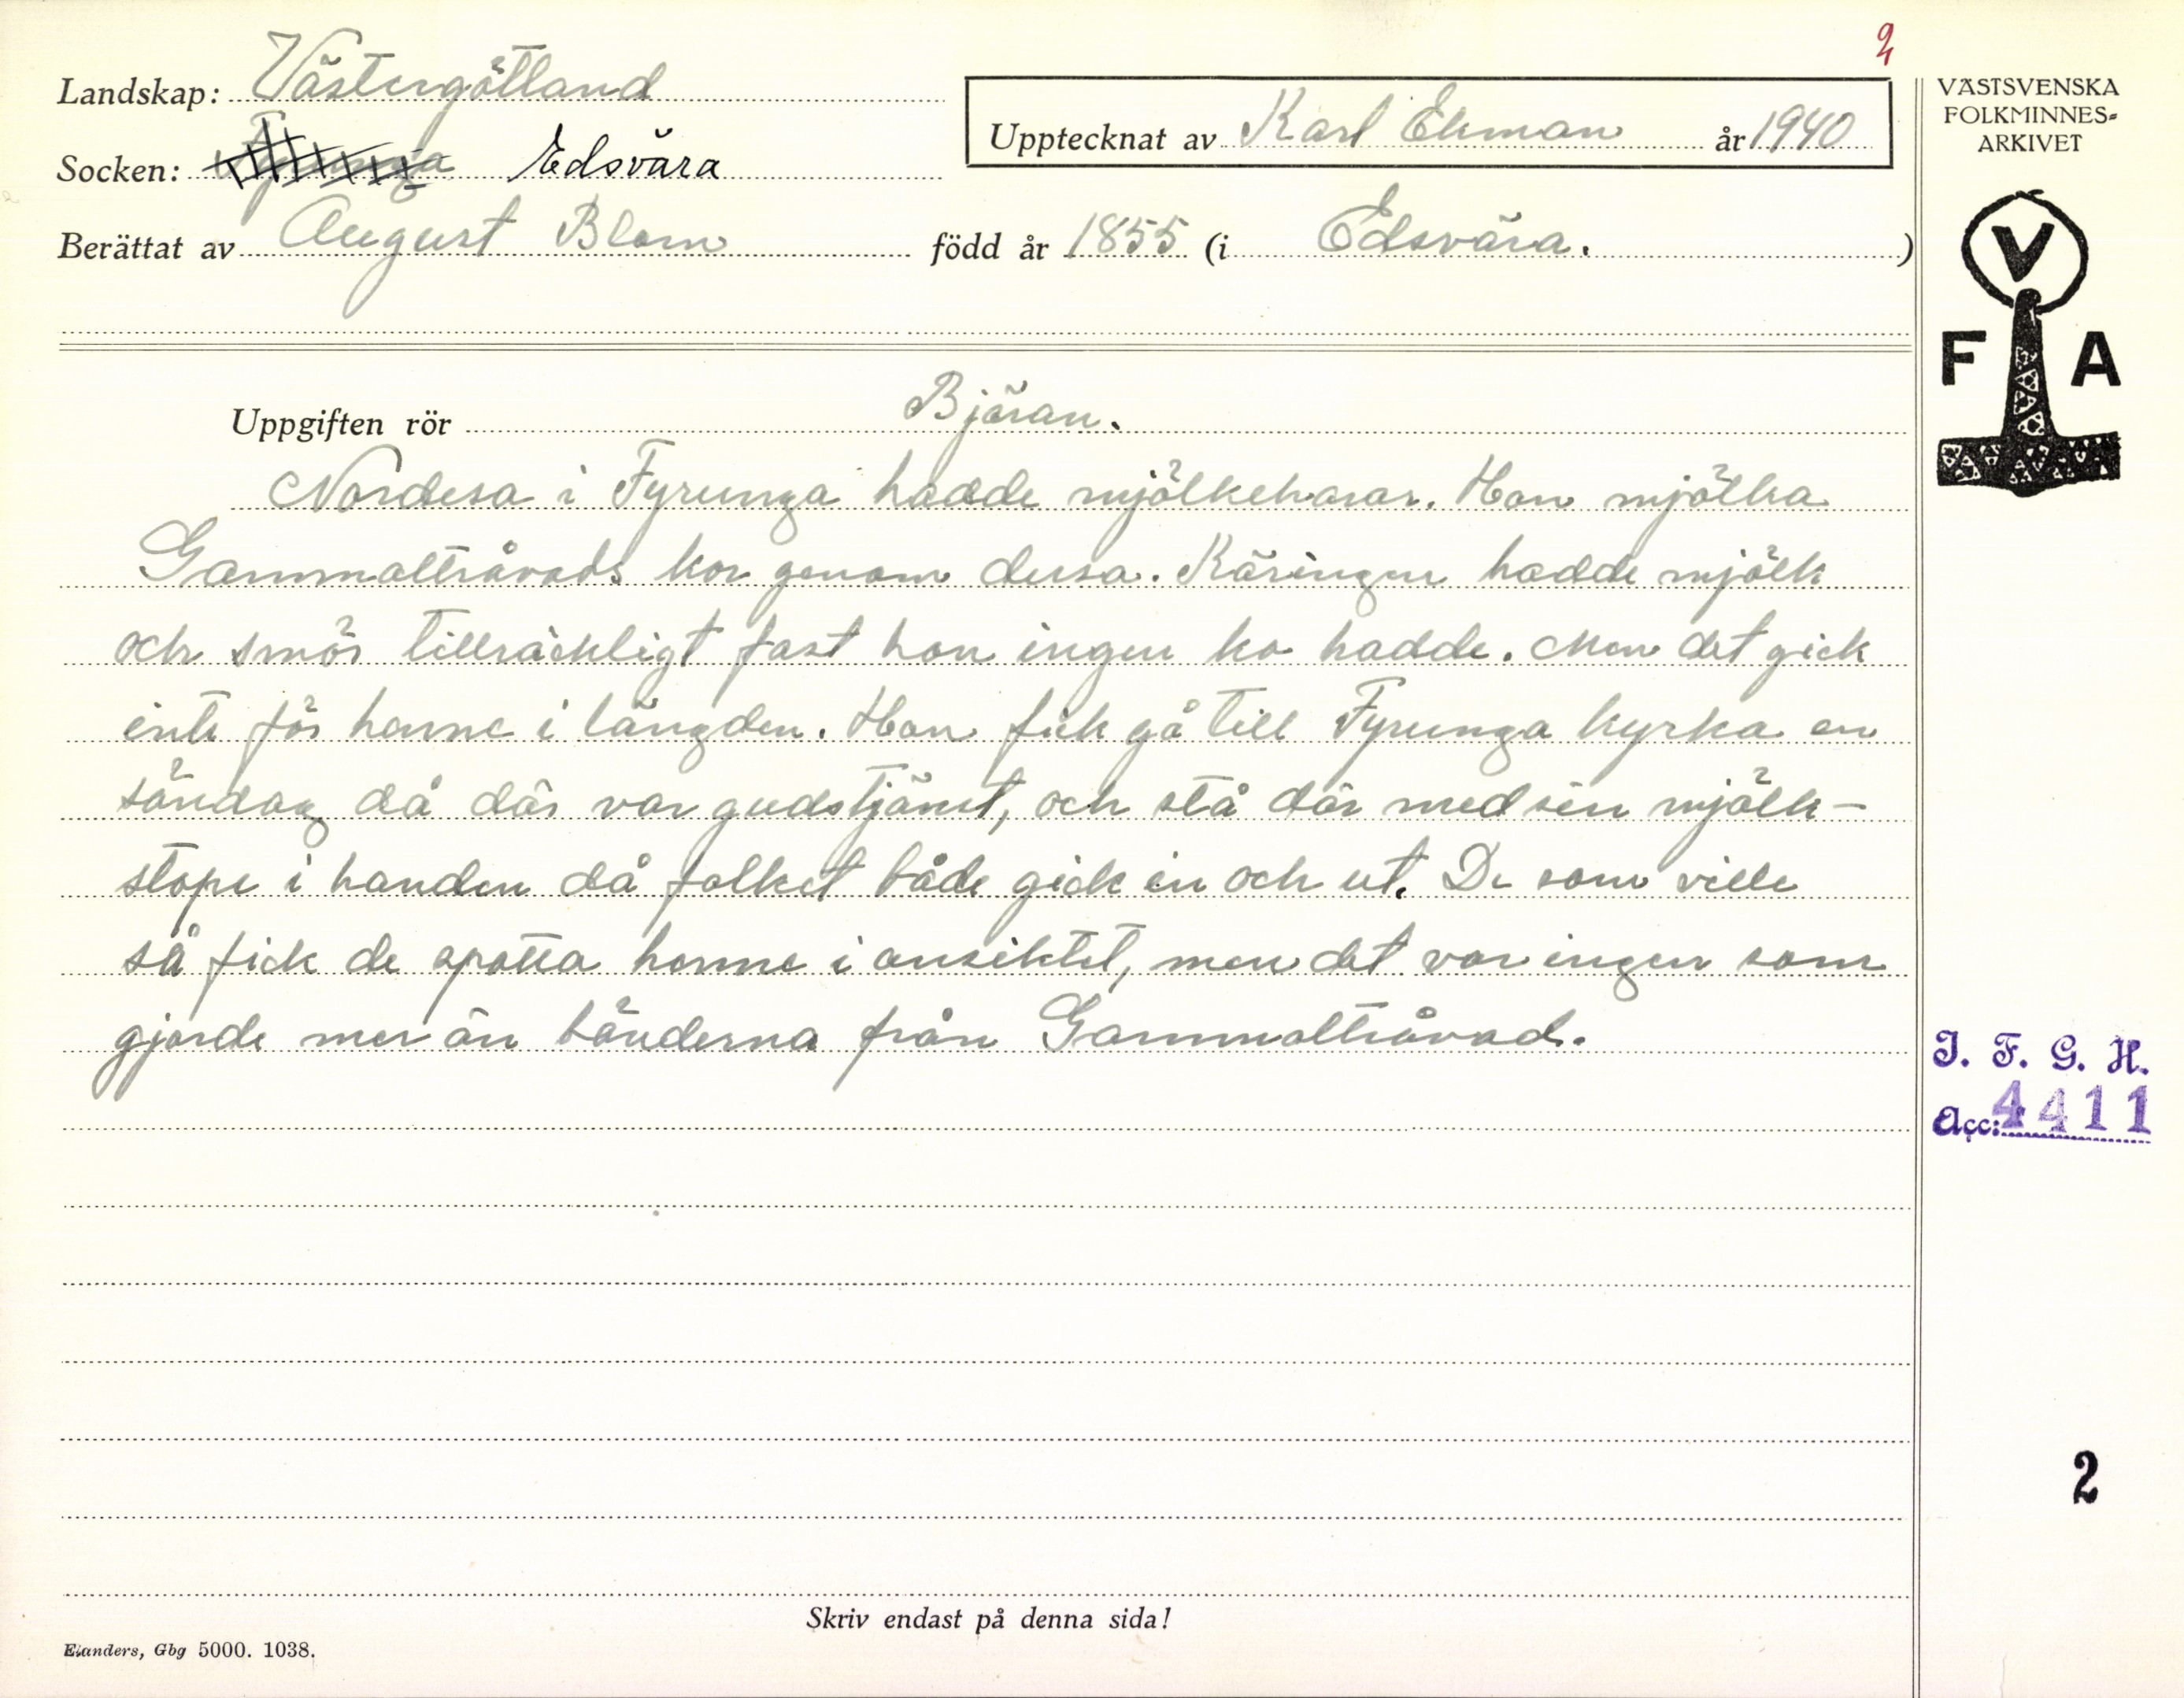 2
Landskap: Västergötland
Upptecknat av Karl Ekman år 1940
VÄSTSVENSKA
FOLKMINNES-
ARKIVET
Socken: Fyrunga Edsvära
Berättat av August Blom född år 1855 (i Edsvära.)
V
F A
Uppgiften rör Bjäran.
Nordesa i Fyrunga hadde mjölkeharar. Hon mjölka
Gammaltråvads kor genom dessa. Käringen hadde mjölk
och smör tillräckligt fast hon ingen ko hadde. Men det gick
inte för henne i längden. Hon fick gå till Fyrunga kyrka en
söndag då där var gudstjänst, och stå där med sin mjölk-
stope i handen då folket både gick in och ut. De som ville
så fick de spotta henne i ansiktet, men det var ingen som
gjorde mer än bönderna från Gammaltråvad.
I. F. G. H.
Acc: 4411
2
Skriv endast på denna sida!
Elanders, Gbg 5000. 1038.